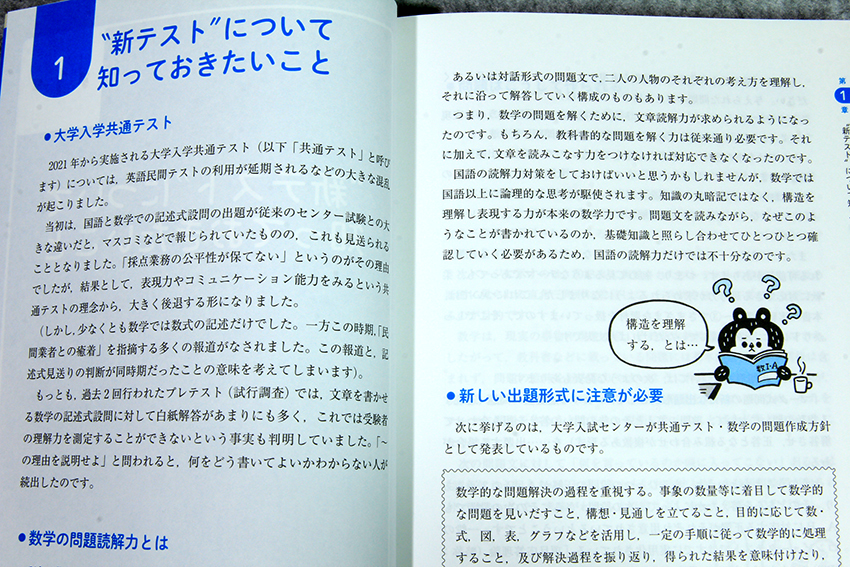 1
“新テスト”について
知っておきたいこと
●大学入学共通テスト
2021年から実施される大学入学共通テスト（以下「共通テスト」と呼び
ます）については，英語民間テストの利用が延期されるなどの大きな混乱
が起こりました。
当初は，国語と数学での記述式設問の出題が従来のセンター試験との大
きな違いだと，マスコミなどで報じられていたものの，これも見送られる
こととなりました。「採点業務の公平性が保てない」というのがその理由
でしたが，結果として，表現力やコミュニケーション能力をみるという共
通テストの理念から，大きく後退する形になりました。
（しかし，少なくとも数学では数式の記述だけでした。一方この時期，「民
間業者との癒着」を指摘する多くの報道がなされました。この報道と，記
述式見送りの判断が同時期だったことの意味を考えてしまいます）。
もっとも，過去2回行われたプレテスト（試行調査）では，文章を書かせ
る数学の記述式設問に対して白紙解答があまりにも多く，これでは受験者
の理解力を測定することができないという事実も判明していました。「～
の理由を説明せよ」と問われると，何をどう書いてよいかわからない人が
続出したのです。
●数学の問題読解力とは
あるいは対話形式の問題文で，二人の人物のそれぞれの考え方を理解し，
それに沿って解答していく構成のものもあります。
つまり，数学の問題を解くために，文章読解力が求められるようになっ
たのです。もちろん，教科書的な問題を解く力は従来通り必要です。それ
に加えて，文章を読みこなす力をつけなければ対応できなくなったのです。
国語の読解力対策をしておけばいいと思うかもしれませんが，数学では
国語以上に論理的な思考が駆使されます。知識の丸暗記ではなく，構造を
理解し表現する力が本来の数学力です。問題文を読みながら，なぜこのよ
うなことが書かれているのか，基礎知識と照らし合わせてひとつひとつ確
認していく必要があるため，国語の読解力だけでは不十分なのです。
構造を理解
する，とは…
? ? ? ?
数I・A
●新しい出題形式に注意が必要
次に挙げるのは，大学入試センターが共通テスト・数学の問題作成方針
として発表しているものです。
数学的な問題解決の過程を重視する。事象の数量等に着目して数学的
な問題を見いだすこと，構想・見通しを立てること，目的に応じて数・
式，図，表，グラフなどを活用し，一定の手順に従って数学的に処理
すること，及び解決過程を振り返り，得られた結果を意味付けたり，
第
1
章